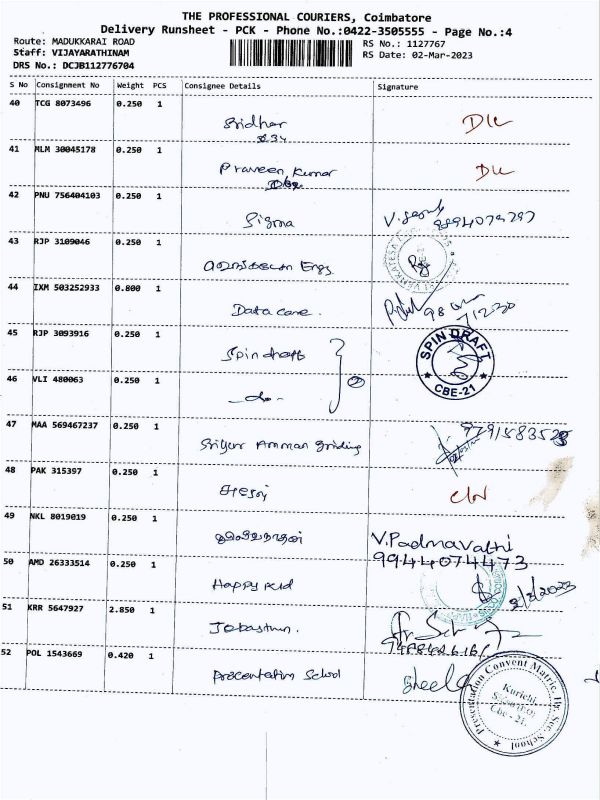 THE PROFESSIONAL COURIERS, Coimbatore
Delivery Runsheet - PCK - Phone No.:0422-3505555 - Page No.:4
Route: MADUKKARAI ROAD
RS No.: 1127767
Staff: VIJAYARATHINAM
RS Date: 02-Mar-2023
DRS No.: DCJB112776704
S No Consignment No Weight PCS Consignee Details Signature
40 TCG 8073496 0.250 1
Sridhar
41 MLM 30045178 0.250 1
Praveen Kumar
42 PNU 756404103 0.250 1
Sigma
43 RJP 3109046 0.250 1
Engg
44 IXM 503252933 0.800 1
Data care.
45 RJP 3093916 0.250 1
Spin draft
SPIN DRAFT
CBE-21
46 VLI 480063 0.250 1
-do-
47 MAA 569467237 0.250 1
Amman
48 PAK 315397 0.250 1
49 NKL 8019019 0.250 1
V.Padmavathi
9944074473
50 AMD 26333514 0.250 1
Happy kid
51 KRR 5647927 2.850 1
52 POL 1543669 0.420 1
Presentation School
Sheela
Presentation Convent Matric. Hr. Sec. School
Kurichi
Cbe - 21.